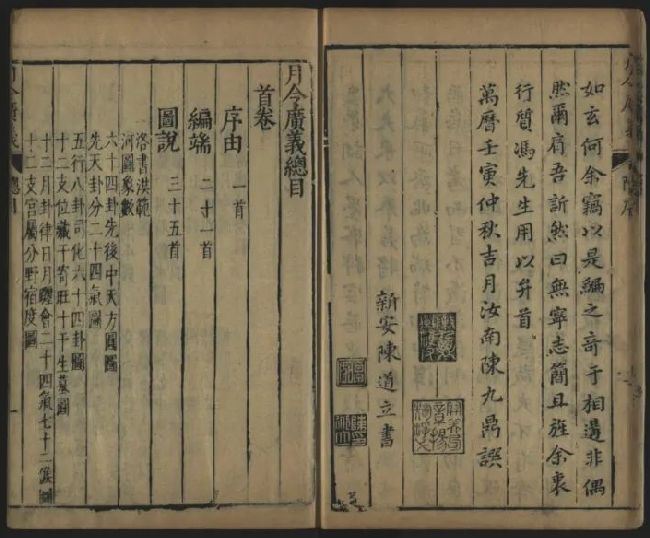 如玄何余竊以是編之奇于相遇非偶
然爾肩吾訢然曰無寧志簡且旌余衷
行質馮先生用以弁首
萬曆壬寅仲秋吉月汝南陳九鼎譔
新安陳道立書
月令廣義總目
首卷
序由 一首
編端 二十一首
圖說 三十五首
洛書洪範
河圖象數
六十四卦先後中天方圓圖
先天卦分二十四氣圖
五行八卦司化六十四卦圖
十二支位藏干寄旺十干生墓圖
十二月卦律日月躔會二十四氣七十二候圖
十二支宮屬分野宿度圖